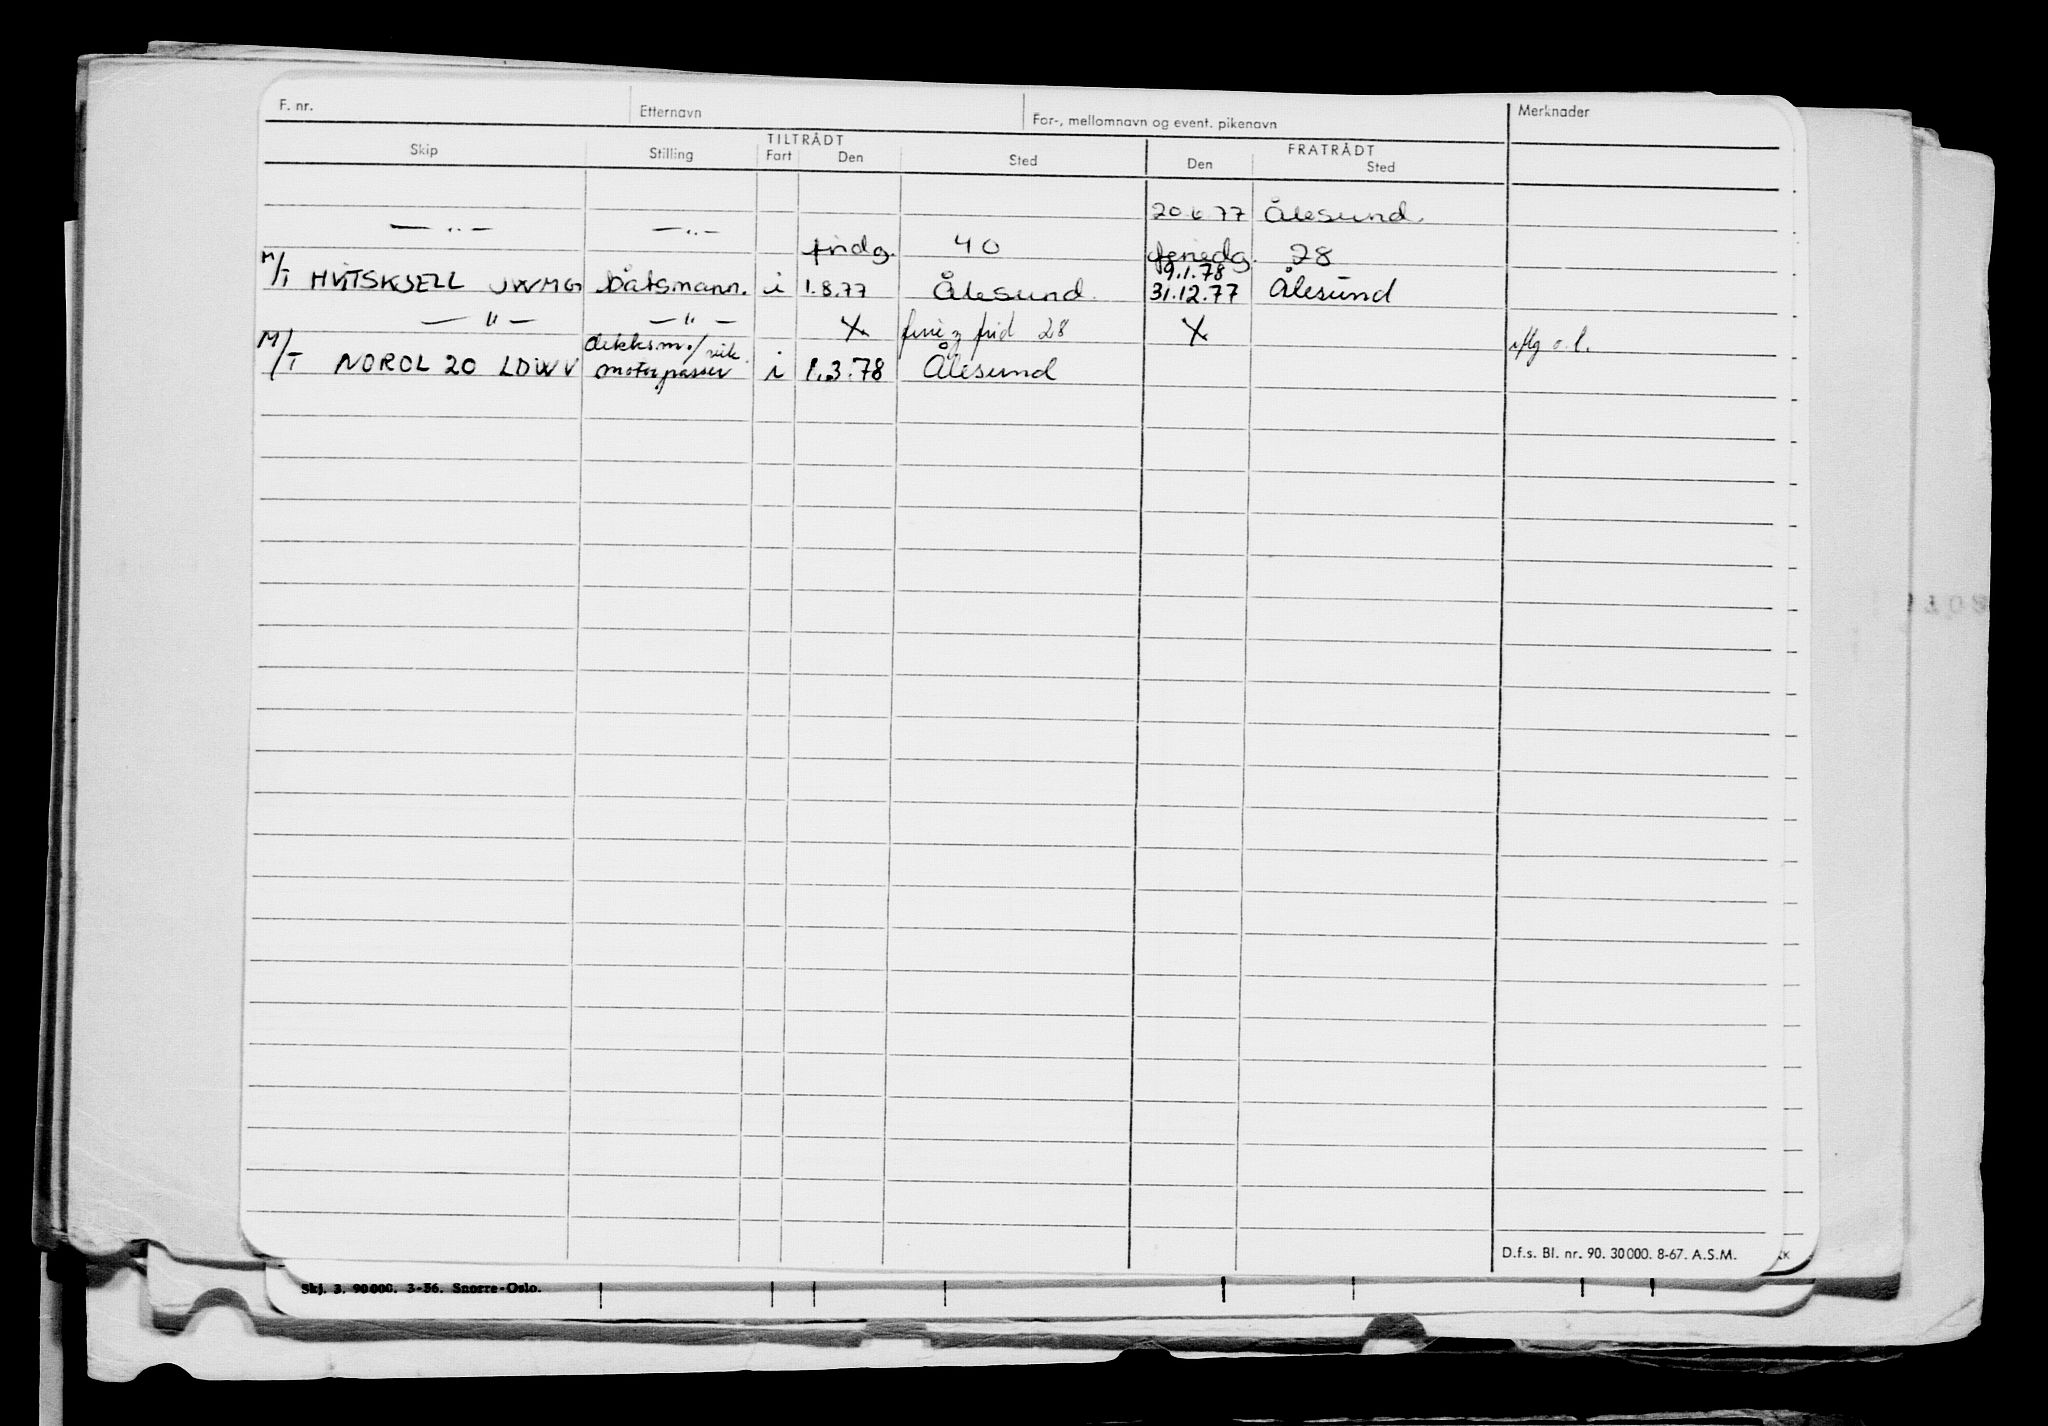 F. nr. Etternavn For-, mellomnavn og event. pikenavn Merknader
TILTRÅDT FRATRÅDT
Skip Stilling Fart Den Sted Den Sted
20.6.77 Ålesund.
— " — — " — fridg. 40 feriedg. 28
19.1.78
M/T HVITSKJELL JWMG båtsmann. i 1.8.77 Ålesund. 31.12.77 Ålesund
— " — — " — X ferie frid 28 X iflg o.l.
dekksm./vik.
M/T NOROL 20 LDWV motorpasser i 1.3.78 Ålesund
D.f.s. Bl. nr. 90. 30000. 8-67. A.S.M.
Skj. 3. 90000. 3-56. Snorre-Oslo.